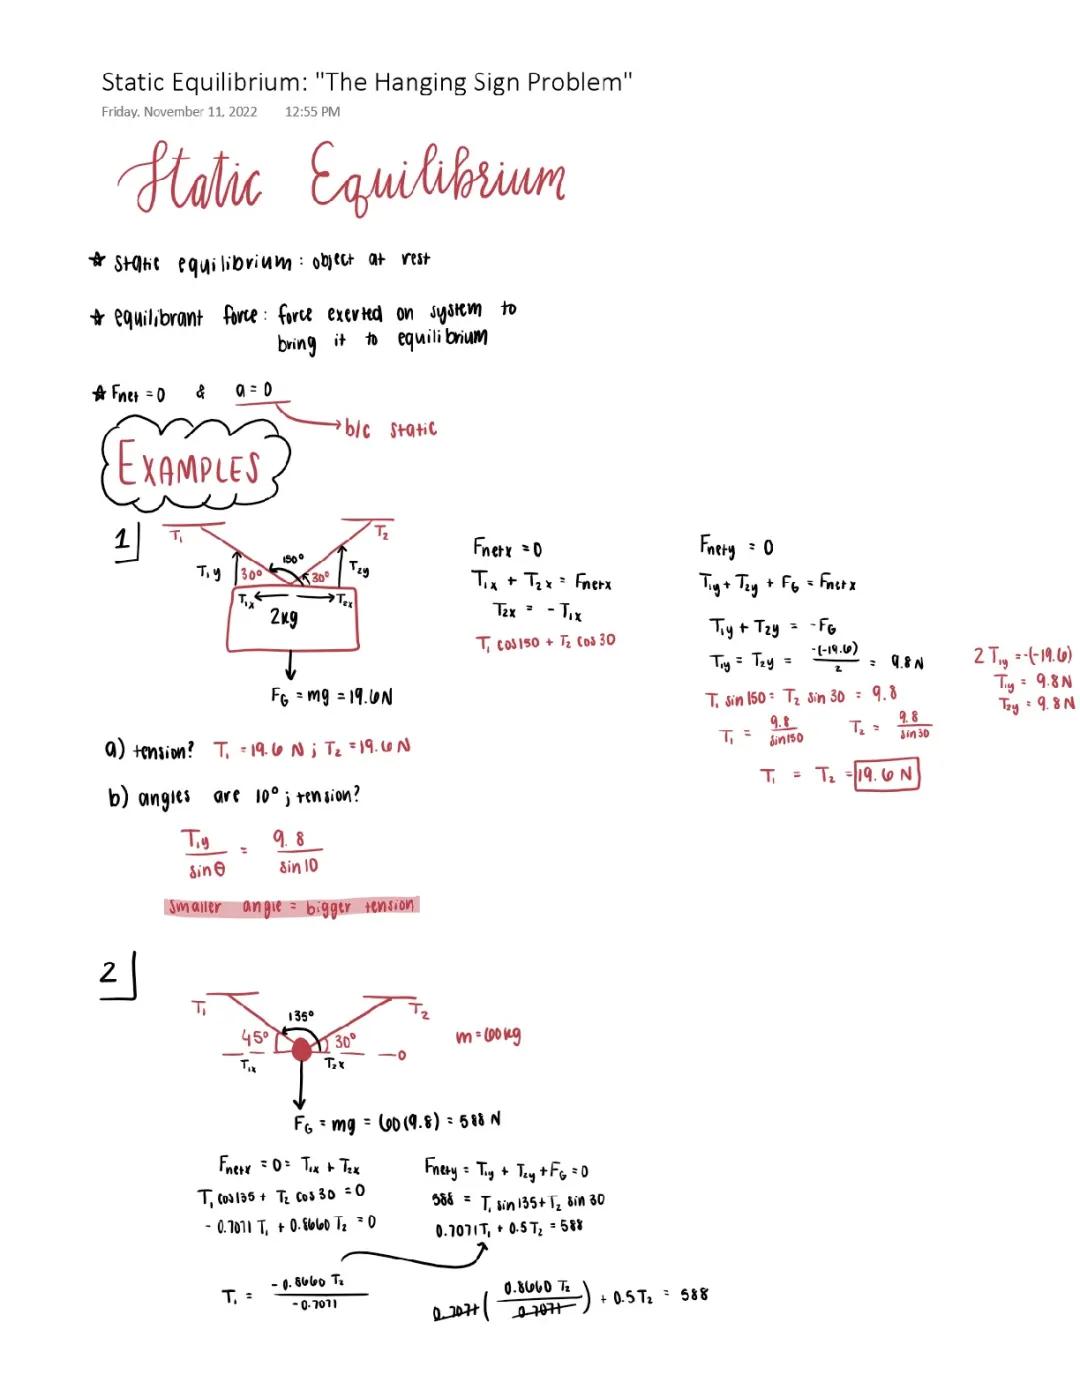 Static Equilibrium: "The Hanging Sign Problem"
Friday, November 11, 2022 12:55 PM
Static Equilibrium
☆ static equilibrium: object at rest
☆ equilibrant force: force exerted on system to
bring it to equilibrium
☆ Fnet = 0 & a = 0
→ b/c static
EXAMPLES
1
T₁ T₂
150°
T₁y 30° 30° T₂y
T₁x T₂x
2kg
FG = mg = 19.6N
Fnetx = 0
T₁x + T₂x = Fnetx
T₂x = - T₁x
T₁ cos150 + T₂ cos 30
Fnety = 0
T₁y + T₂y + FG = Fnetx
T₁y + T₂y = -FG
T₁y = T₂y = -(-19.6)/2 = 9.8 N
T₁ sin 150 = T₂ sin 30 = 9.8
T₁ = 9.8/sin150 T₂ = 9.8/sin30
T₁ = T₂ = 19.6 N
2 T₁y = -(-19.6)
T₁y = 9.8N
T₂y = 9.8N
a) tension? T₁ = 19.6 N ; T₂ = 19.6 N
b) angles are 10° ; tension?
T₁y/sin θ = 9.8/sin 10
smaller angle = bigger tension
2
T₁ T₂
135°
45° 30°
T₁x T₂x 0
m = 60kg
FG = mg = 60(9.8) = 588 N
Fnetx = 0 = T₁x + T₂x
T₁ cos135 + T₂ cos 30 = 0
- 0.7071 T₁ + 0.8660 T₂ = 0
T₁ = - 0.8660 T₂/-0.7071
Fnety = T₁y + T₂y + FG = 0
588 = T₁ sin 135 + T₂ sin 30
0.7071T₁ + 0.5T₂ = 588
0.7071 (0.8660 T₂/0.7071) + 0.5T₂ = 588